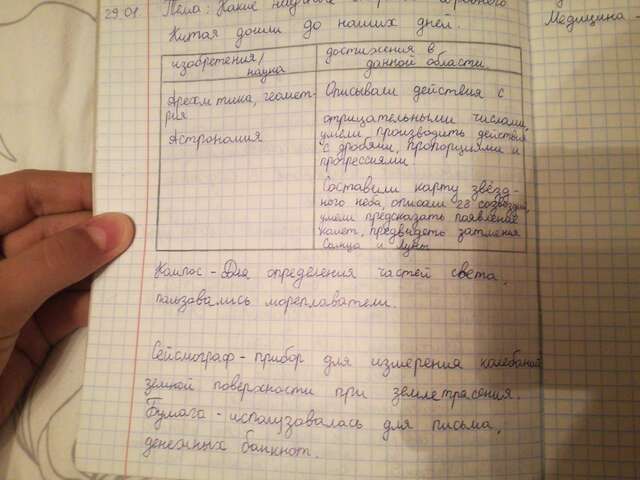 29.01. Тема: Какие
Китая дошли до наших дней.
изобретения/
наука
достижения в
данной области.
Арехмтика, геомет-
рия
Астрономия
Описывали действия с
отрицательными числами,
умели производить действия
с дробями, пропорциями и
прогрессиями
Составили карту звёзд-
ного неба, описали 28 созвездий,
умели предсказать появление
комет, предвидеть затмения
Солнца и Луны
Компас - Для определения частей света.
пользовались мореплаватели.
Сейсмограф - прибор для измерения колебаний
земной поверхности при землетрясения.
Бумага - использовалась для письма,
денежных банкнот.
Медицина